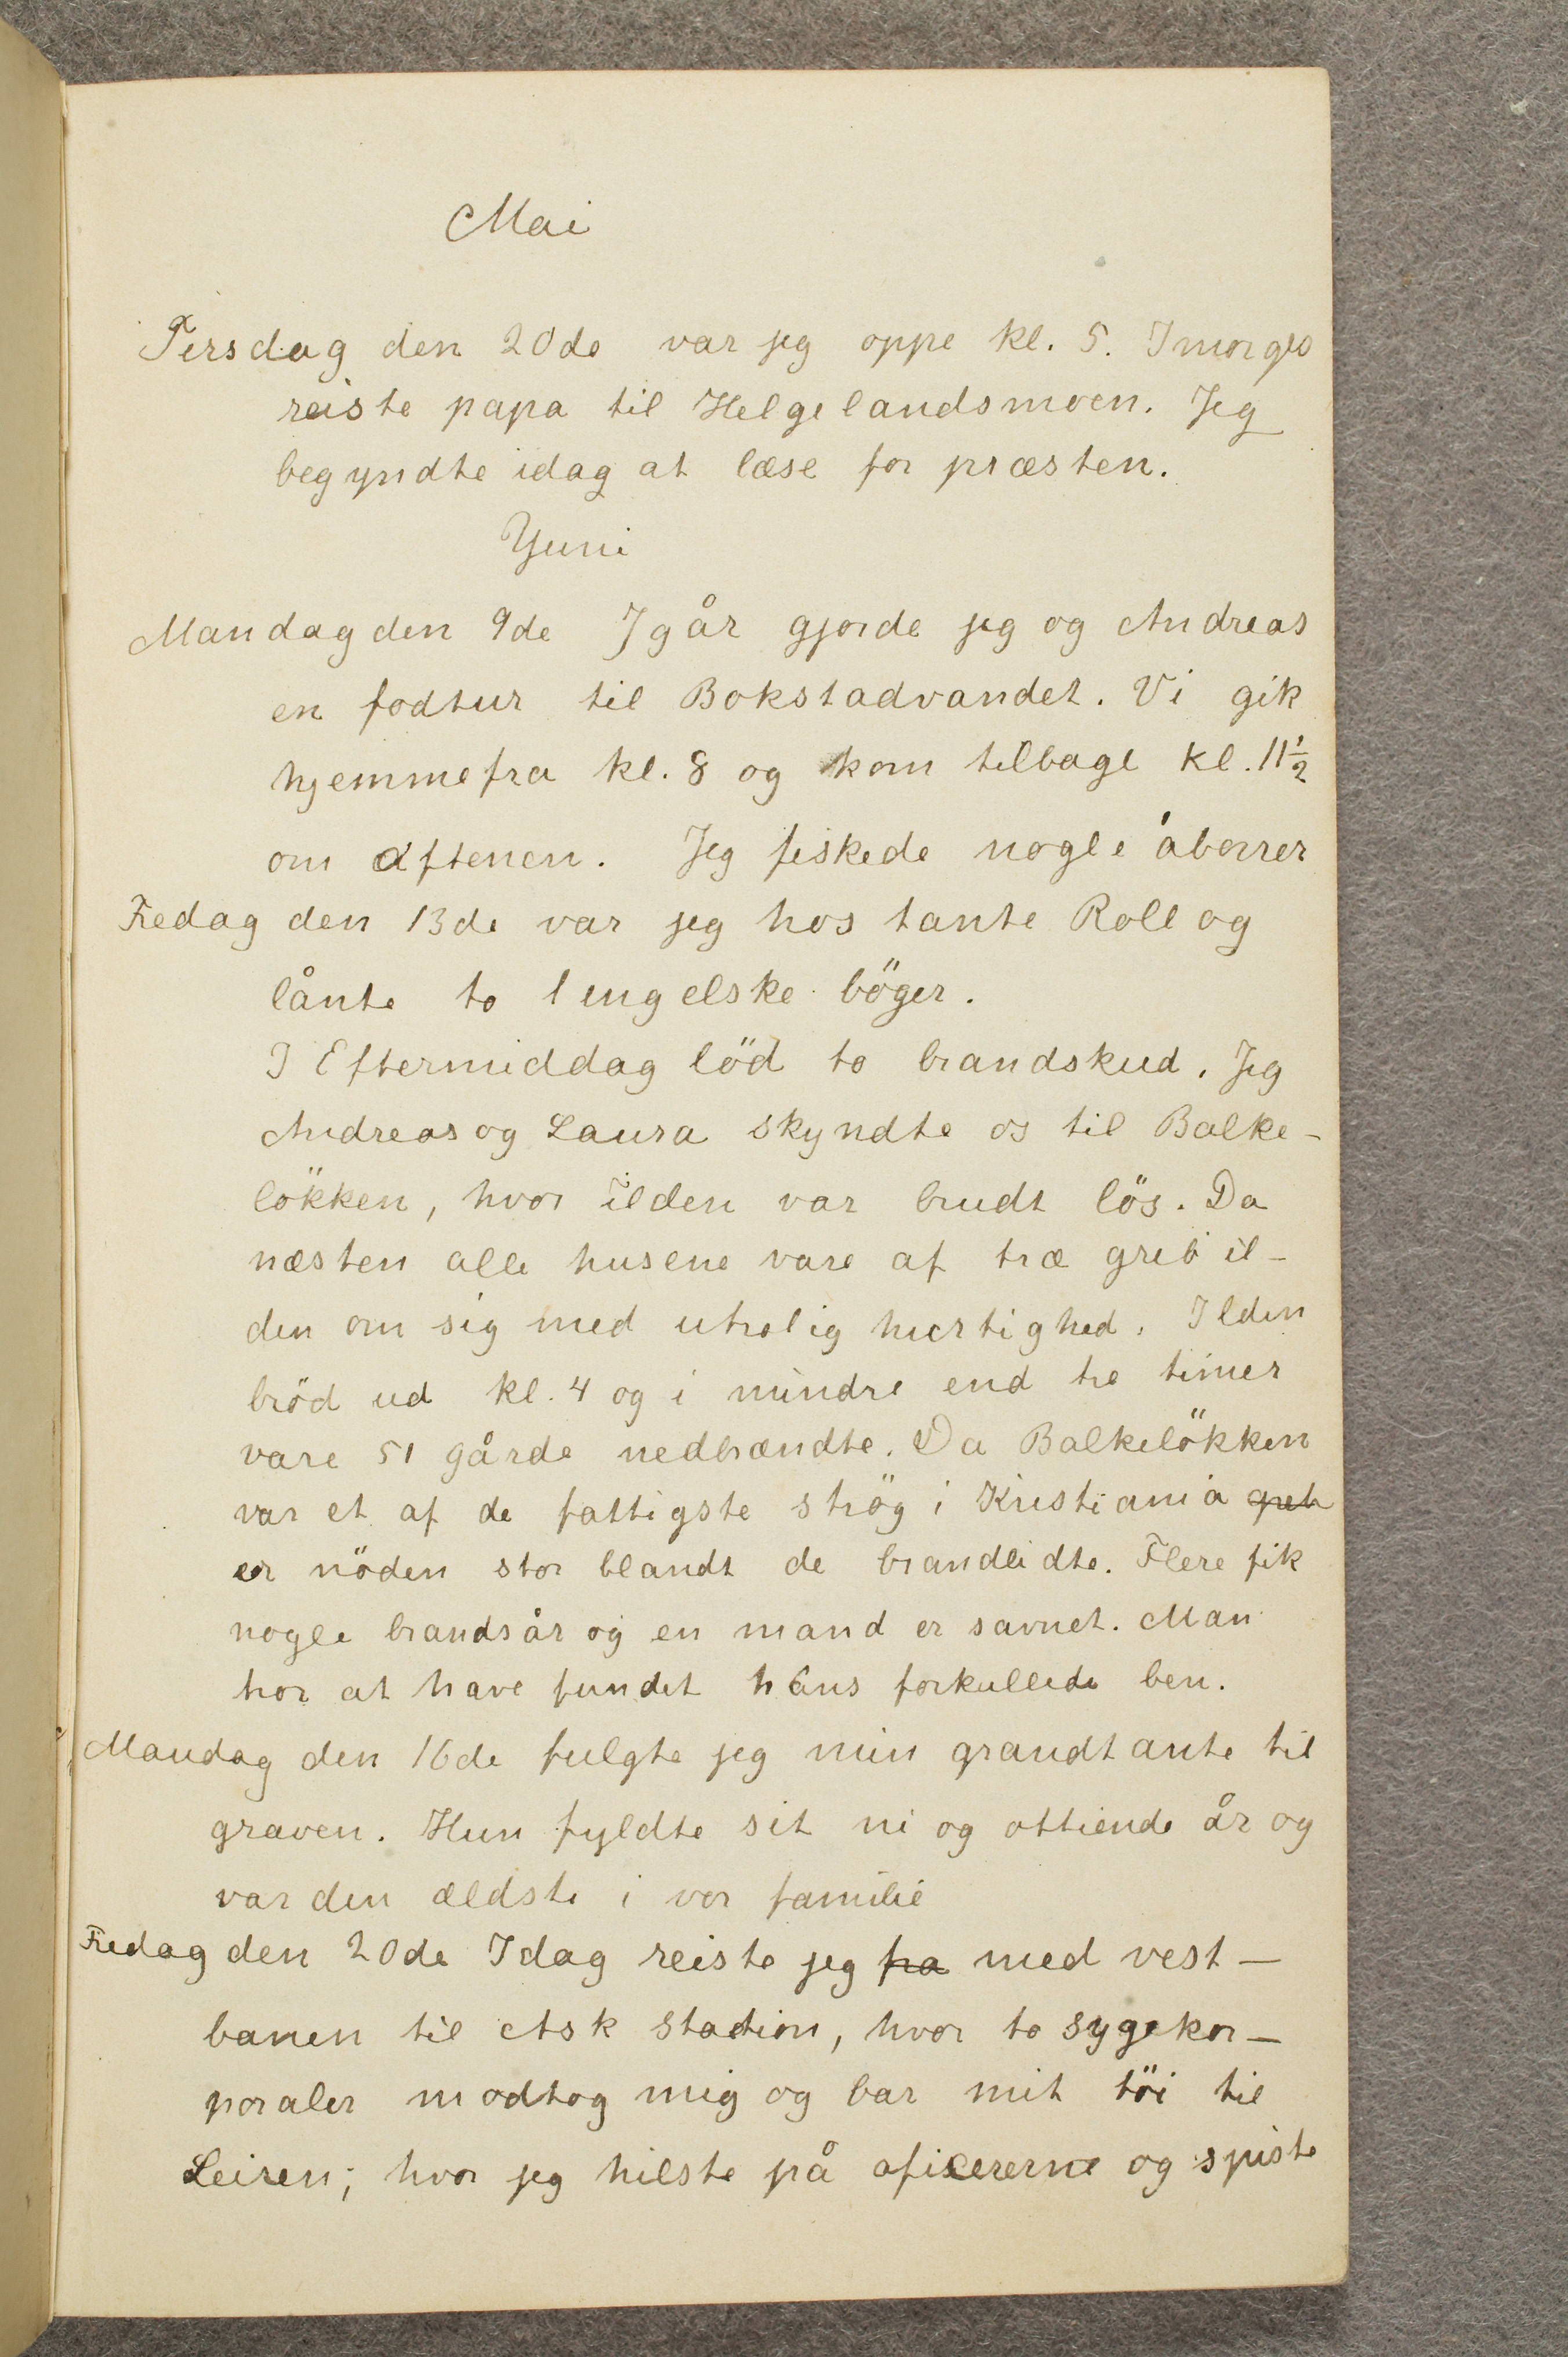 Mai
Tirsdag den 20de var jeg oppe kl. 5. Imorges
reiste papa til Helgelandsmoen. Jeg
begyndte idag at læse for præsten.
Yuni
Mandag den 9de Igår gjorde jeg og Andreas
en fodtur til Bokstadvandet. Vi gik
hjemmefra kl. 8 og kom tilbage kl. 11½
om aftenen. Jeg fiskede nogle åborrer
Fredag den 13de var jeg hos tante Roll og
lånte to engelske böger.
I Eftermiddag löd to brandskud. Jeg
Andreas og Laura skyndte os til Balke-
lökken, hvor ilden var brudt lös. Da
næsten alle husene vare af træ greb il-
den om sig med utrolig hurtighed. Ilden
bröd ud kl. 4 og i mindre end tre timer
vare 51 gårde nedbrændte. Da Balkelökken
var et af de fattigste strög i Kristiania
er nöden stor blandt de brandlidte. Flere fik
nogle brandsår og en mand er savnet. Man
tror at have fundet hans forkullede ben.
Mandag den 16de fulgte jeg min grandtante til
graven. Hun fyldte sit ni og ottiende år og
var den ældste i vor familie
Fredag den 20de Idag reiste jeg fra med vest-
banen til Ask stadion, hvor to sygekor-
poraler modtog mig og bar mit töi til
Leiren; hvor jeg hilste på oficererne og spiste